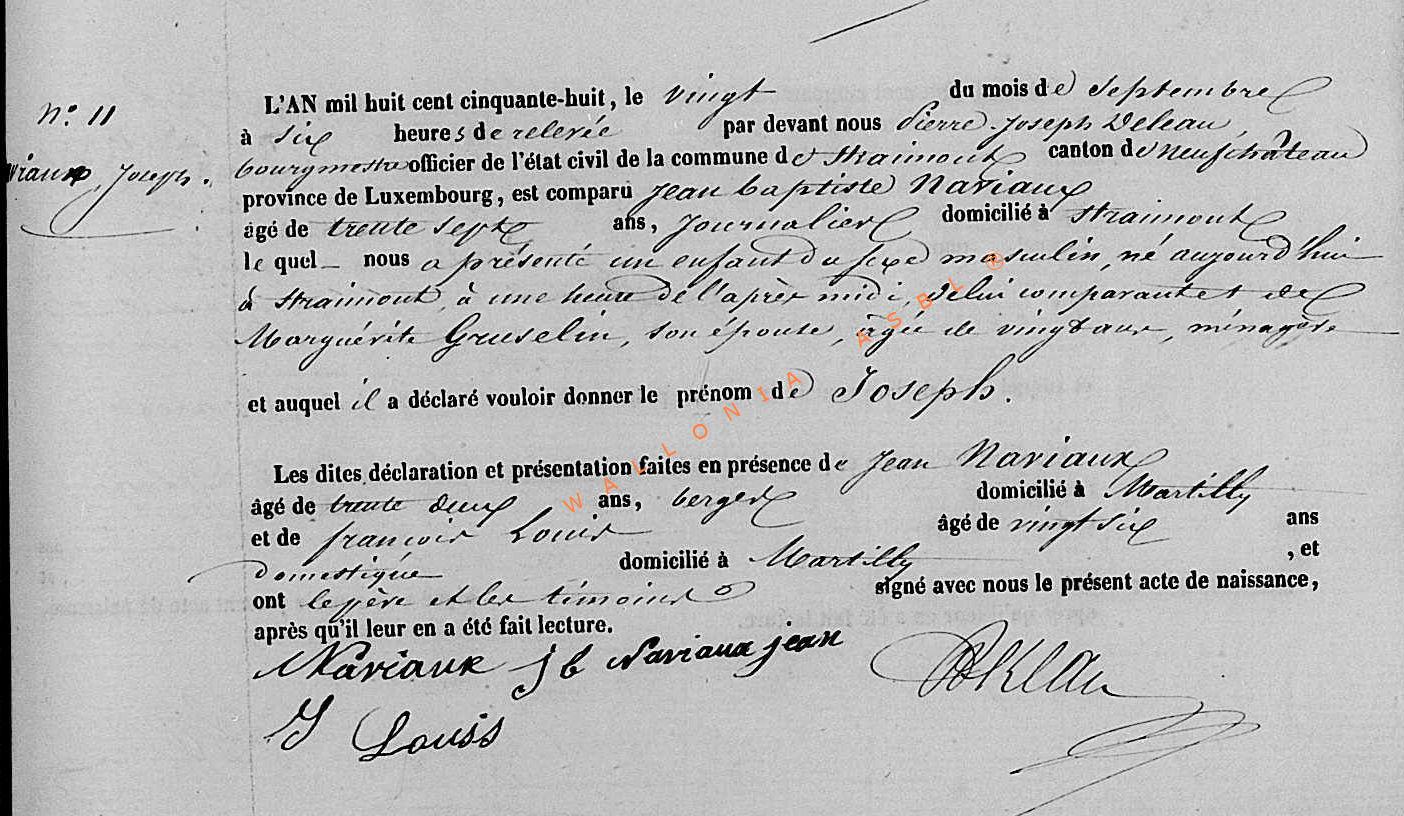 N.º 11
L'AN mil huit cent cinquante-huit, le vingt du mois de Septembre
à Six heures de relevée par devant nous Pierre Joseph Deleau,
riaux, Joseph.
bourgmestre officier de l'état civil de la commune de Straimont canton de neufchâteau
province de Luxembourg, est comparu Jean baptiste Nariaux
âgé de trente sept ans, Journalier domicilié à Straimont
le quel nous a présenté un enfant du sexe masculin, né aujourd'hui
à Straimont, à une heure de l'après midi, de lui comparant et de
Marguérite Gruselin, son épouse, âgée de vingt ans, ménagère
et auquel il a déclaré vouloir donner le prénom de Joseph.
Les dites déclaration et présentation faites en présence de Jean Nariaux
âgé de trente deux ans, berger domicilié à Martilly
et de françois Louis âgé de vingt six ans
domestique domicilié à Martilly , et
ont le père et les témoins signé avec nous le présent acte de naissance,
après qu'il leur en a été fait lecture.
Nariaux j b Nariaux jean
Louis
WALLONIA ASBL ®